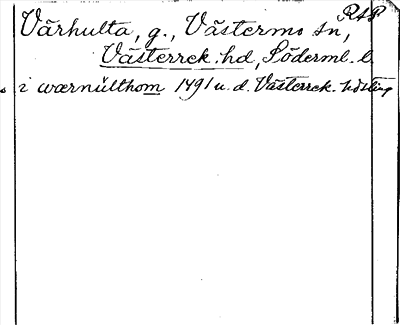 RAP
Värhulta, g., Västermo sn,
Västerrek. hd, Söderml. l.
i wærnülthom 1491 u. d. Västerrek. hdsting